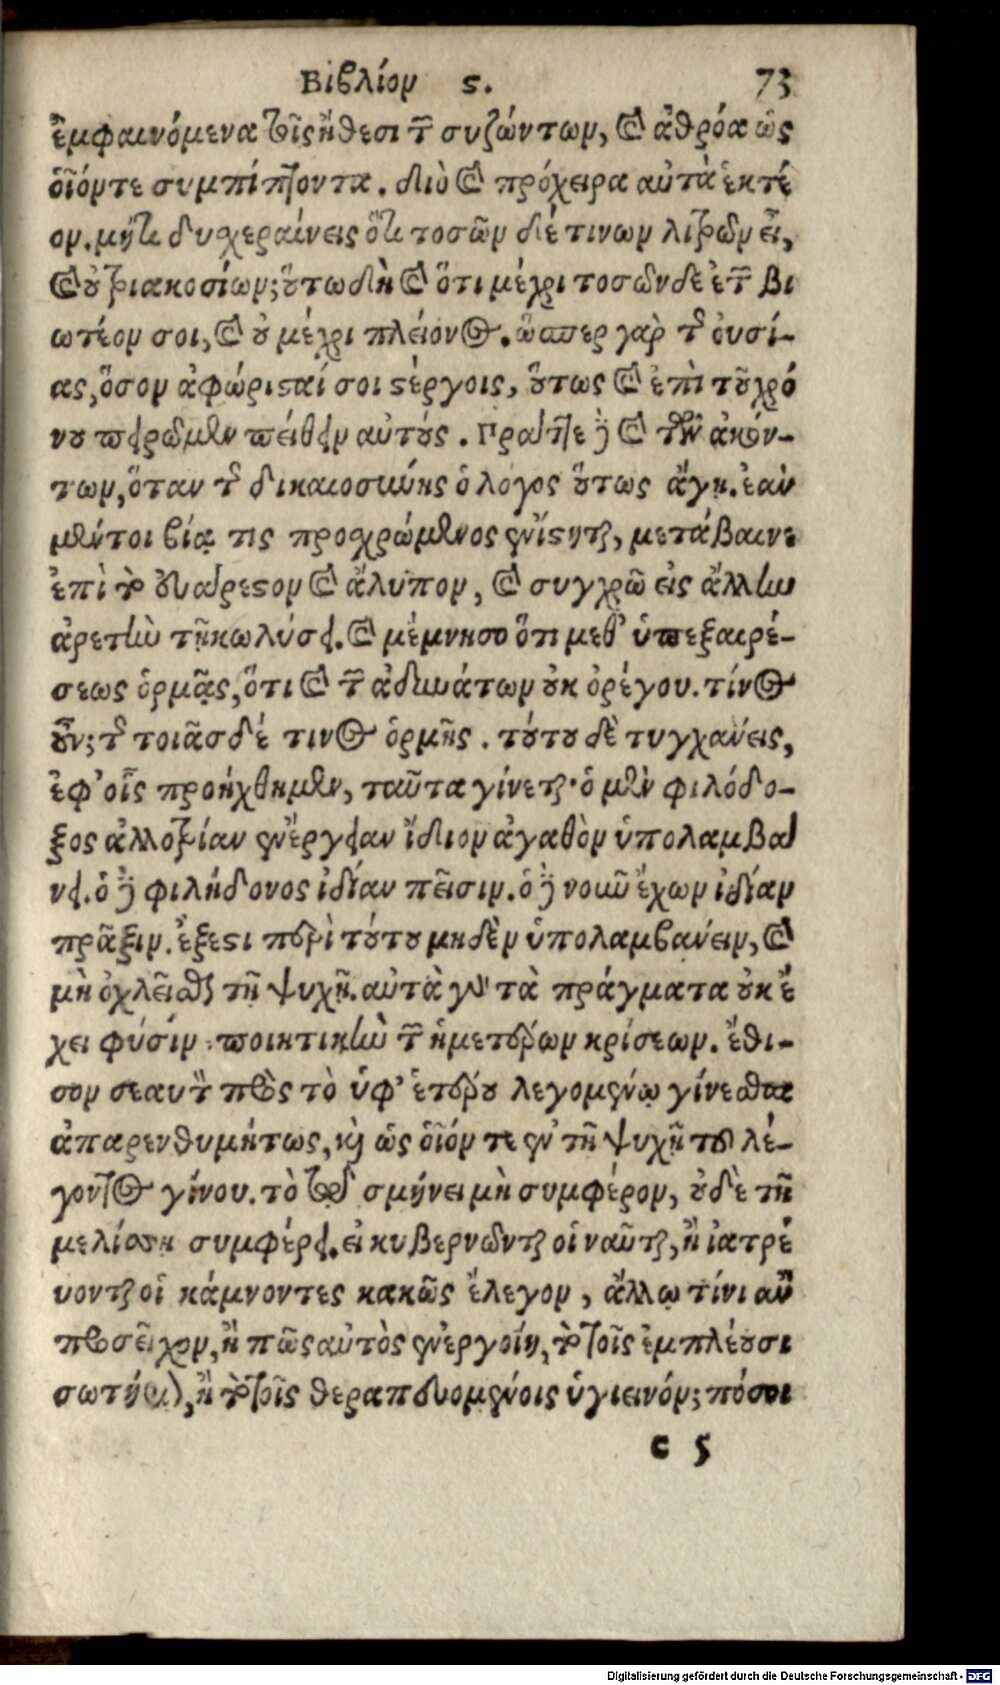 Βιβλίον ς. 73
ἐμφαινόμενα τοῖς ἤθεσι τῶν συζώντων, καὶ ἀθρόα ὡς
οἷόντε συμπίπτοντα. διὸ καὶ πρόχειρα αὐτὰ ἑκτέ
ον. μήτι δυχεραίνεις ὅτι τοσῶν δέ τινων λιτρῶν εἶ,
καὶ οὐ τριακοσίων; οὕτω δὴ καὶ ὅτι μέχρι τοσῶνδε ἐτῶν βι
ωτέον σοι, καὶ οὐ μέχρι πλείονος. ὥσπερ γὰρ τῆς οὐσί-
ας, ὅσον ἀφώρισταί σοι στέργοις, οὕτως καὶ ἐπὶ τοῦ χρό
νου πειρῶμεν πείθειν αὐτούς. Πράττε δὲ καὶ τῶν ἀκόν-
των, ὅταν τῆς δικαιοσύνης ὁ λόγος οὕτως ἄγῃ. ἐὰν
μέντοι βίᾳ τις προχρώμενος ἐνίστηται, μετάβαινε
ἐπὶ τὸ εὐάρεστον καὶ ἄλυπον, καὶ συγχρῶ εἰς ἄλλην
ἀρετὴν τῇ κωλύσει. καὶ μέμνησο ὅτι μεθ’ ὑπεξαιρέ-
σεως ὁρμᾷς, ὅτι καὶ τῶν ἀδυνάτων οὐκ ὀρέγου. τίνος
οὖν; τῆς τοιᾶσδέ τινος ὁρμῆς. τούτου δὲ τυγχάνεις,
ἐφ’ οἷς προήχθημεν, ταῦτα γίνεται· ὁ μὲν φιλόδο-
ξος ἀλλοτρίαν ἐνέργειαν ἴδιον ἀγαθὸν ὑπολαμβά
νει. ὁ δὲ φιλήδονος ἰδίαν πεῖσιν. ὁ δὲ νοῦν ἔχων ἰδίαν
πρᾶξιν. ἔξεστι περὶ τούτου μηδὲν ὑπολαμβάνειν, καὶ
μὴ ὀχλεῖσθαι τῇ ψυχῇ. αὐτὰ γὰρ τὰ πράγματα οὐκ ἔ
χει φύσιν ποιητικὴν τῶν ἡμετέρων κρίσεων. ἔθι-
σον σεαυτὸν πρὸς τὸ ὑφ’ ἑτέρου λεγομένῳ γίνεσθαι
ἀπαρενθυμήτως, καὶ ὡς οἷόν τε ἐν τῇ ψυχῇ τοῦ λέ-
γοντος γίνου. τὸ τῷ σμήνει μὴ συμφέρον, οὐδὲ τῇ
μελίσσῃ συμφέρει. εἰ κυβερνῶνται οἱ ναῦται, ἢ ἰατρέ
υονται οἱ κάμνοντες κακῶς ἔλεγον, ἄλλῳ τίνι ἂν
προσεῖχον, ἢ πῶς αὐτὸς ἐνεργοίη, τὸ τοῖς ἐμπλέουσι
σωτήριον, ἢ τὸ τοῖς θεραπευομένοις ὑγιεινόν; πόσοι
c 5
Digitalisierung gefördert durch die Deutsche Forschungsgemeinschaft - DFG